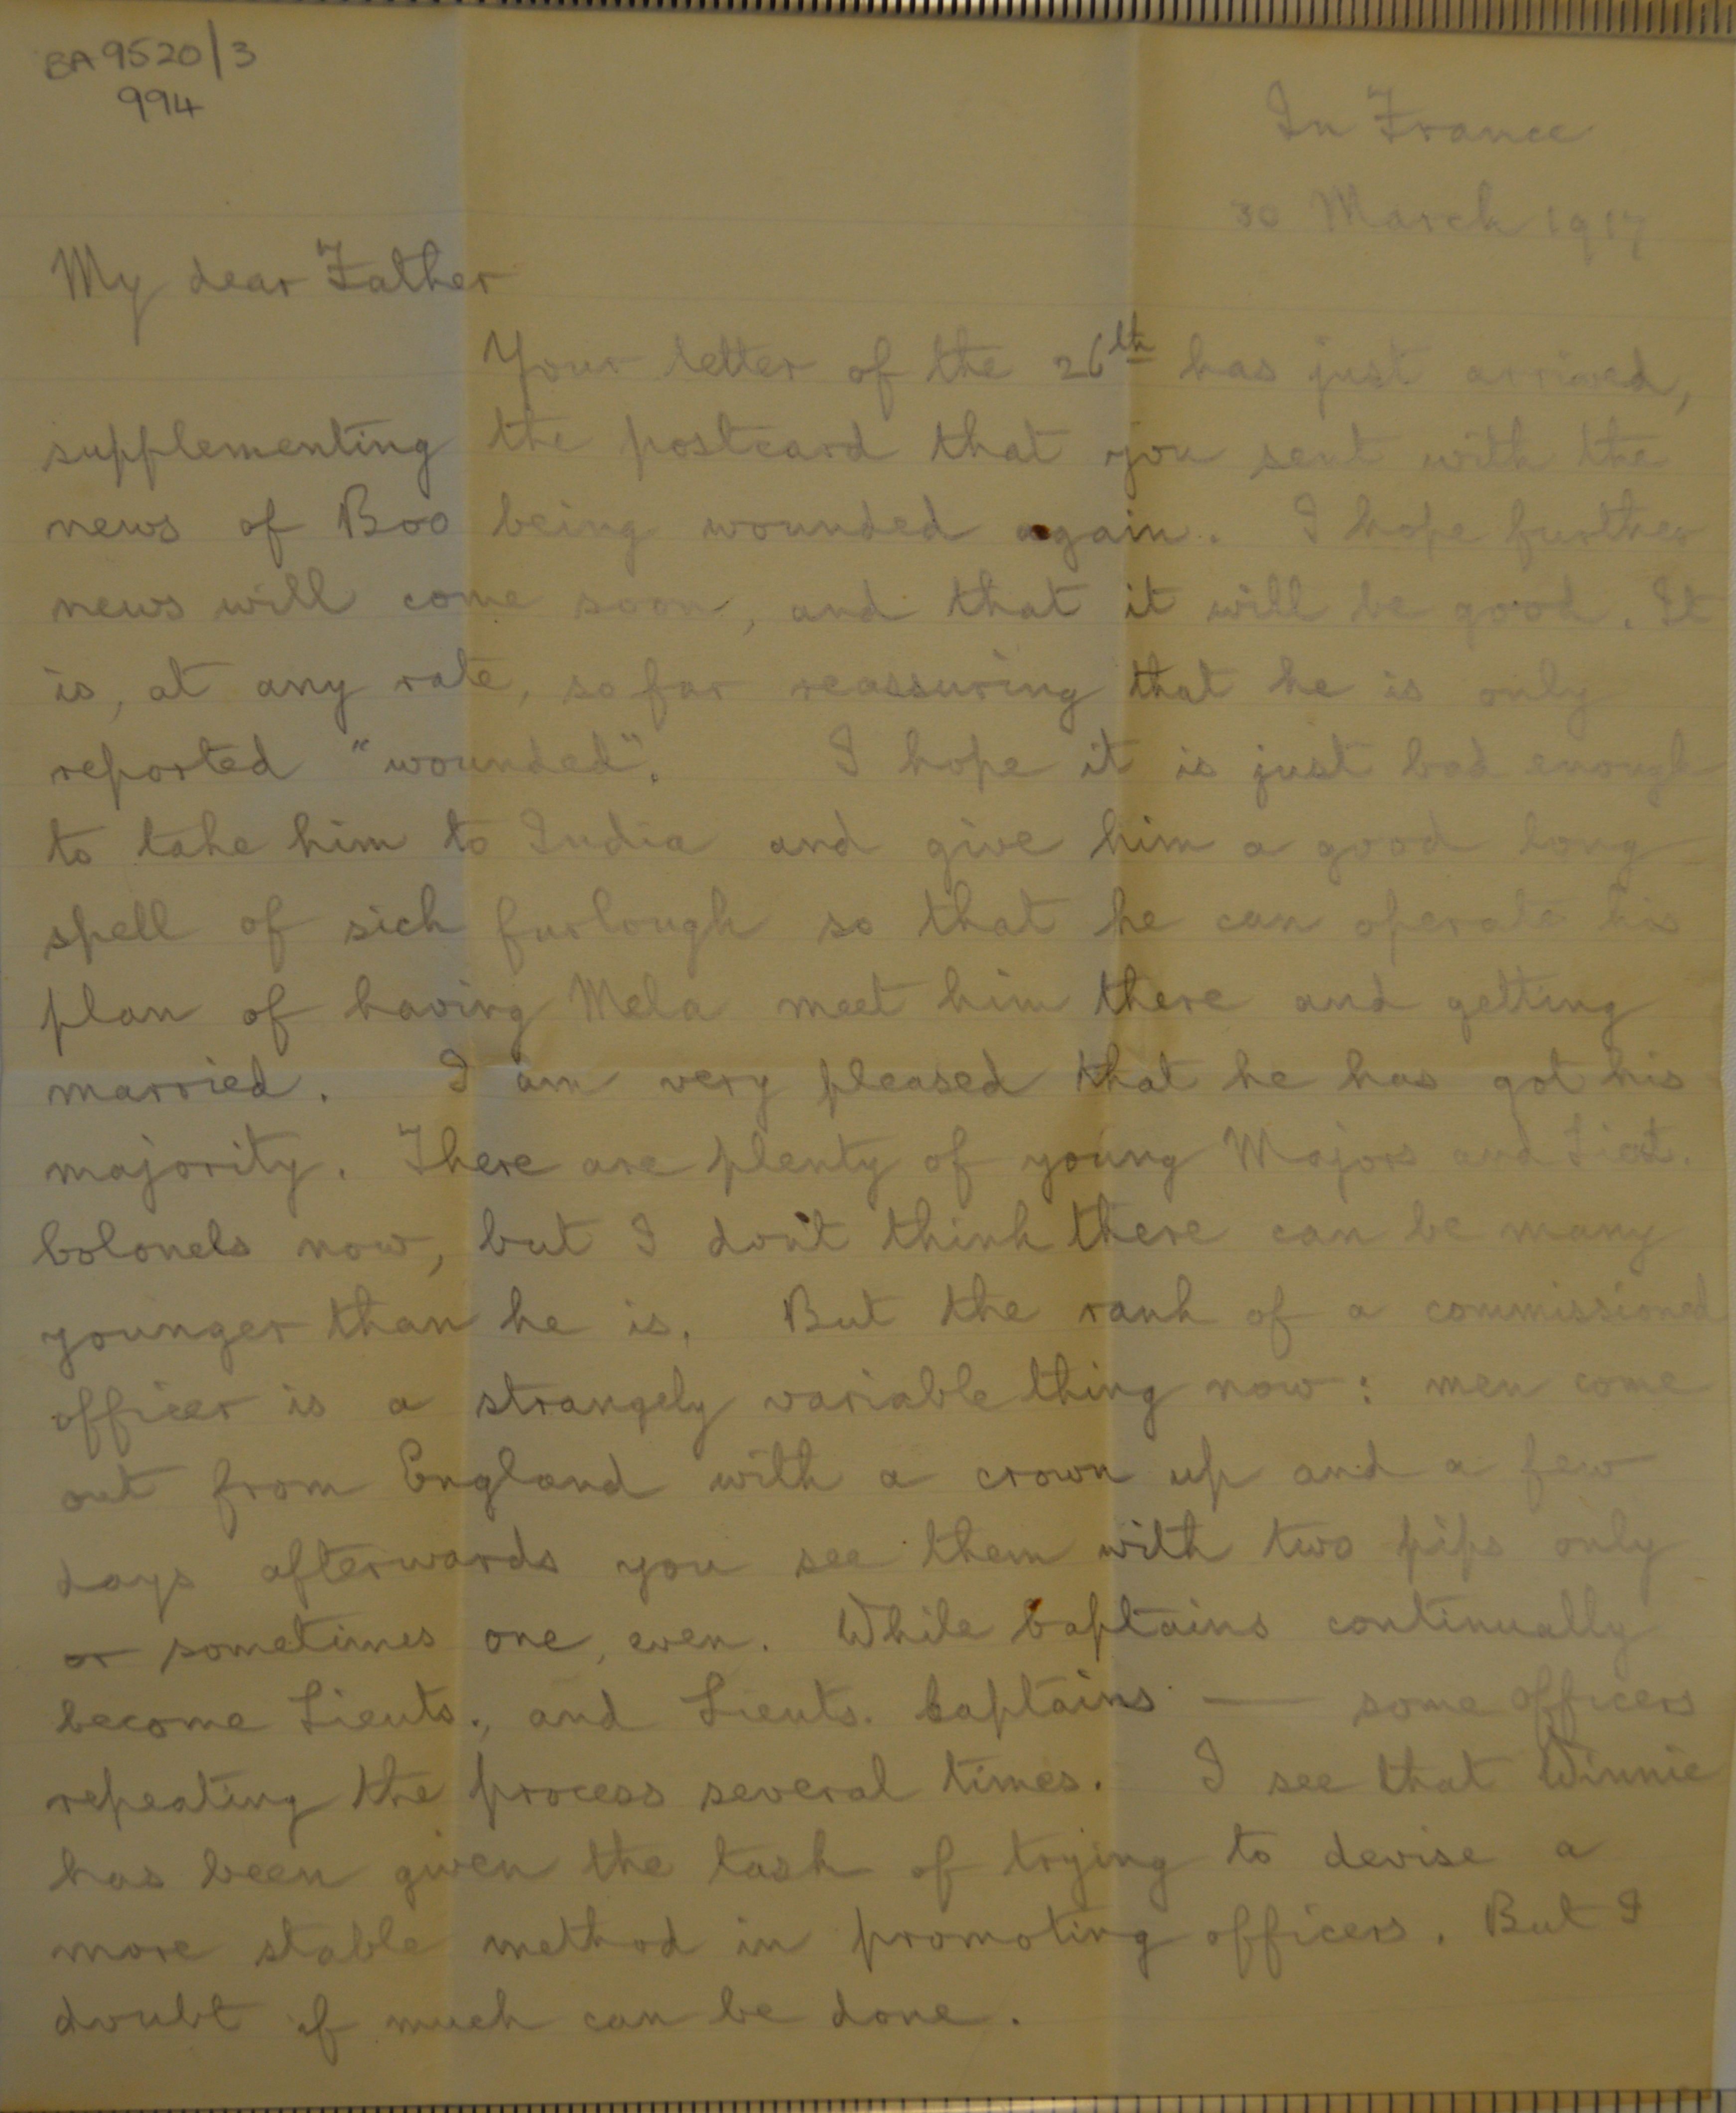 BA 9520/3
994
In France
30 March 1917
My dear Father
Your letter of the 26th has just arrived,
supplementing the postcard that you sent with the
news of Boo being wounded again. I hope further
news will come soon, and that it will be good. It
is, at any rate, so far reassuring that he is only
reported "wounded". I hope it is just bad enough
to take him to India and give him a good long
spell of sick furlough so that he can operate his
plan of having Mela meet him there and getting
married. I am very pleased that he has got his
majority. There are plenty of young Majors and Lieut.
Colonels now, but I don't think there can be many
younger than he is. But the rank of a commissioned
officer is a strangely variable thing now: men come
out from England with a crown up and a few
days afterwards you see them with two pips only
or sometimes one, even. While Captains continually
become Lieuts., and Lieuts. Captains — some officers
repeating the process several times. I see that Winnie
has been given the task of trying to devise a
more stable method in promoting officers. But I
doubt if much can be done.